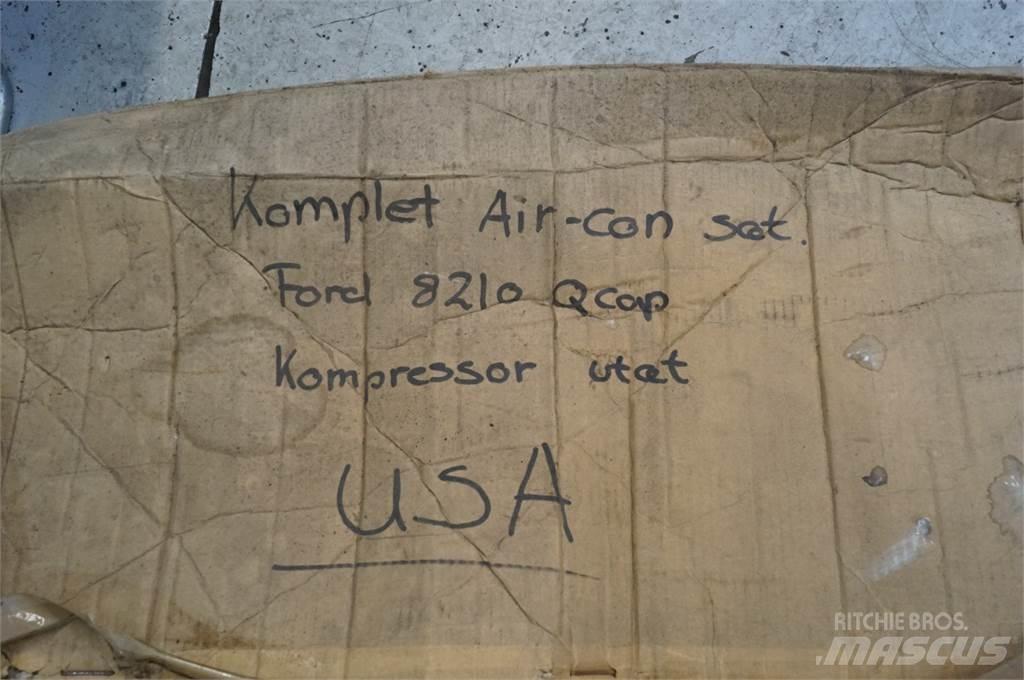 Komplet Air-con sæt.
Ford 8210 Qcap
Kompressor utæt
USA
RITCHIE BROS.
MASCUS